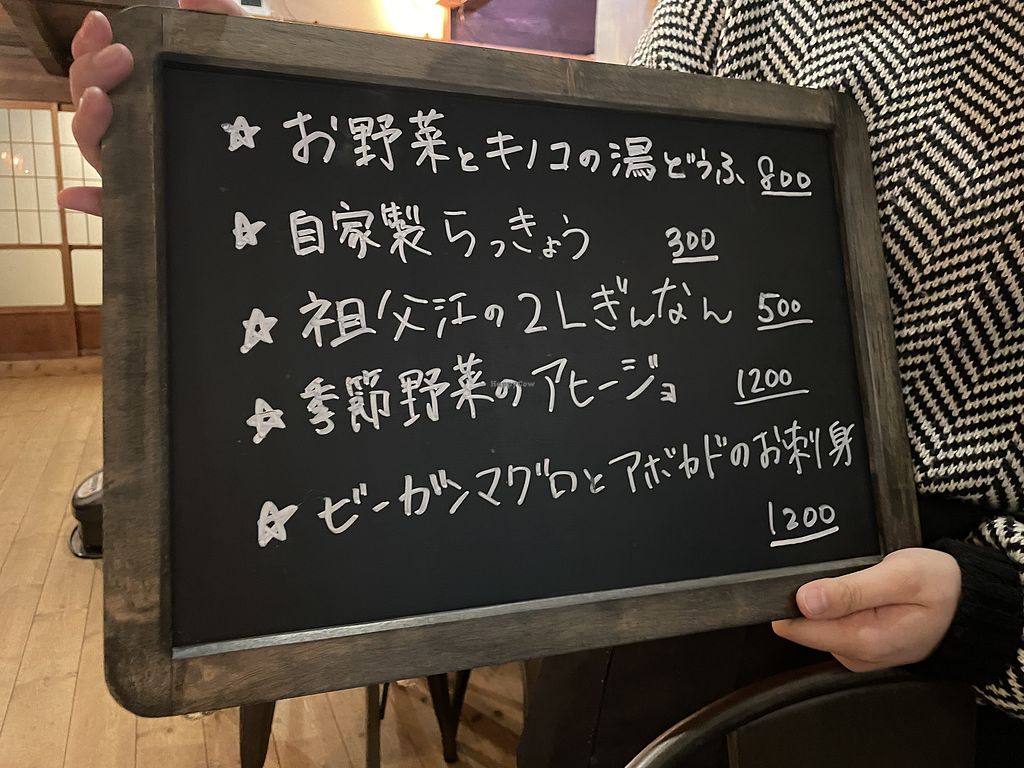 ☆ お野菜とキノコの湯どうふ 800
☆ 自家製らっきょう 300
☆ 祖父江の2Lぎんなん 500
☆ 季節野菜のアヒージョ 1200
☆ ビーガンマグロとアボカドのお刺身
1200
HappyCow